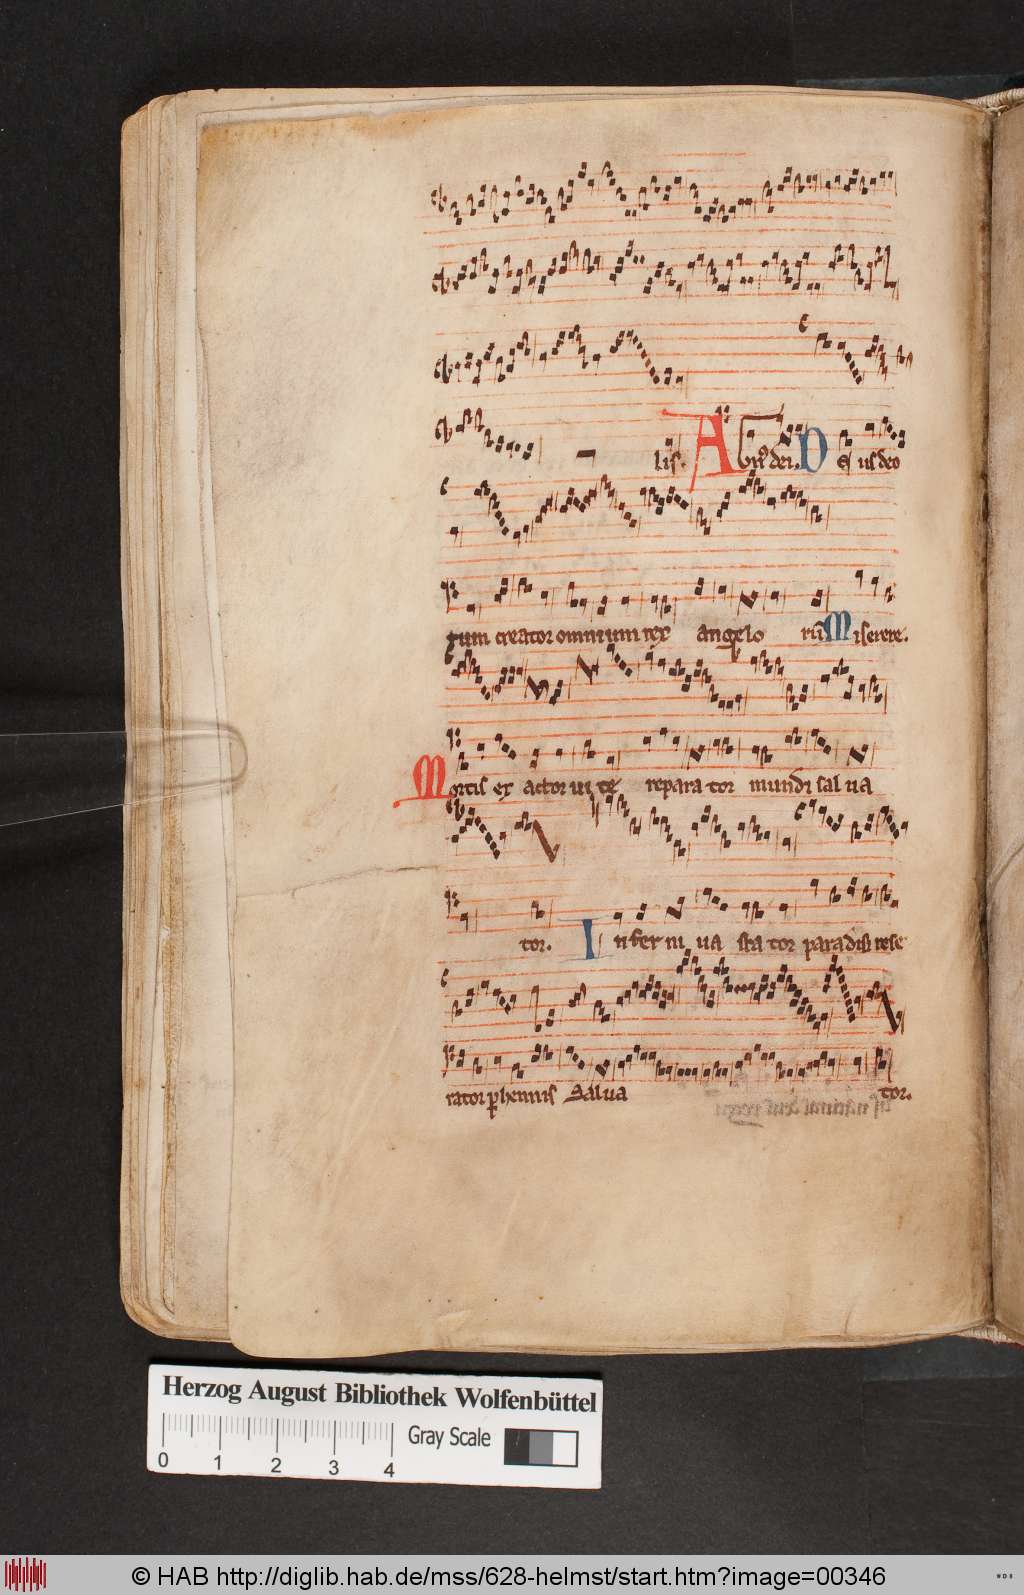 lis. A gn9 dei. D eus deo
rum creator omnium rex angelo rū M iserere.
Mortis ex actor ui te repara tor mundi sal ua
tor. I nferni ua sta tor paradisi rese
rator phennis Salua tor.
Herzog August Bibliothek Wolfenbüttel
Gray Scale
0 1 2 3 4
© HAB http://diglib.hab.de/mss/628-helmst/start.htm?image=00346